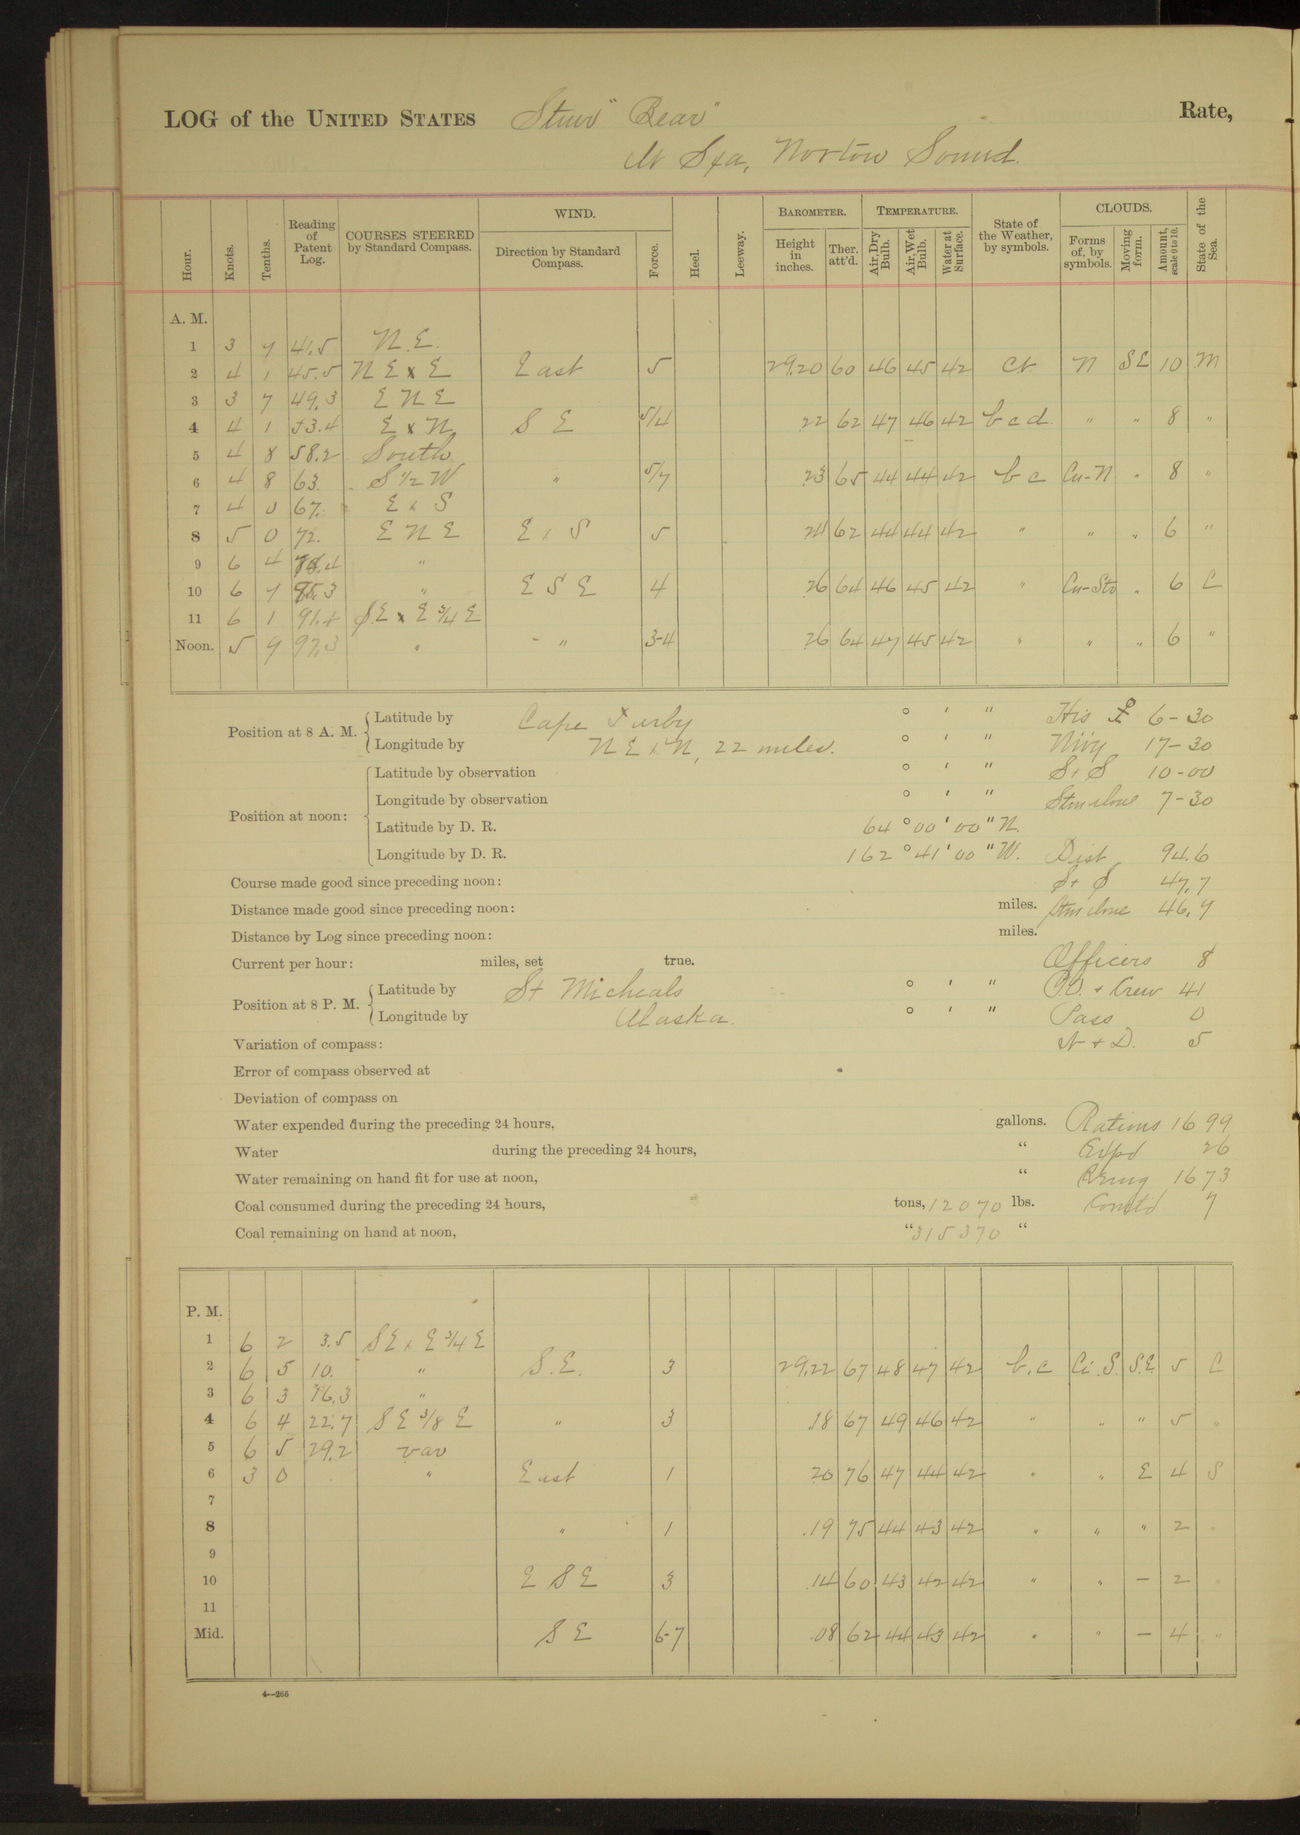 LOG of the UNITED STATES Stmr "Bear" Rate,
At Sea, Norton Sound.
Hour. Knots. Tenths. Reading of Patent Log. COURSES STEERED by Standard Compass. WIND. Direction by Standard Compass. Force. Heel. Leeway. BAROMETER. Height in inches. Ther. att'd. TEMPERATURE. Air, Dry Bulb. Air, Wet Bulb. Water at Surface. State of the Weather, by symbols. CLOUDS. Forms of, by symbols. Moving form. Amount, scale 0 to 10. State of the Sea.
A. M.
1 3 7 41.5 N.E.
2 4 1 45.5 N E x E East 5 29.20 60 46 45 42 N SE 10 M
3 3 7 49.3 E N E
4 4 1 53.4 E x N S E 5/4 .22 62 47 46 42 b c d " " 8 "
5 4 8 58.2 South
6 4 8 63. S 1/2 W " 5/7 .23 65 44 44 42 b c Cu-N " 8 "
7 4 0 67. E x S
8 5 0 72. E N E E x S 5 62 44 44 42 " " " 6 "
9 6 4 78.4 "
10 6 7 85.3 " E S E 4 .26 64 46 45 42 " Cu-Str " 6 C
11 6 1 91.4 S.E x E 3/4 E
Noon. 5 9 97.3 " " 3-4 .26 64 47 45 42 " " " 6 "
Position at 8 A. M. Latitude by Cape Darby ° ' " 6-30
Longitude by N E x N, 22 miles. ° ' " 17-30
Position at noon: Latitude by observation ° ' " S + S 10-00
Longitude by observation ° ' " Stm alone 7-30
Latitude by D. R. 64 ° 00 ' 00 " N.
Longitude by D. R. 162 ° 41 ' 00 " W. Dist 94.6
Course made good since preceding noon: S + S 47.7
Distance made good since preceding noon: miles. Stm alone 46.9
Distance by Log since preceding noon: miles.
Current per hour: miles, set true. Officers 8
Position at 8 P. M. Latitude by St Micheals ° ' " P.O. + Crew 41
Longitude by Alaska. ° ' " Pass 0
Variation of compass: 5
Error of compass observed at
Deviation of compass on
Water expended during the preceding 24 hours, gallons. Rations 1699
Water during the preceding 24 hours, " Expd 26
Water remaining on hand fit for use at noon, " Remg 1673
Coal consumed during the preceding 24 hours, tons, 12070 lbs. Comtd 7
Coal remaining on hand at noon, " 315370 "
P. M.
1 6 2 3.5 S E x E 3/4 E
2 6 5 10. " S.E. 3 29.22 67 48 47 42 b.c Ci.S. S.E. 5 C
3 6 3 16.3 "
4 6 4 22.7 S E 3/8 E " 3 .18 67 49 46 42 " " " 5 "
5 6 5 29.2 var
6 3 0 " East 1 .20 76 47 44 42 " " E 4 S
7
8 " 1 .19 75 44 43 42 " " " 2 "
9
10 E S E 3 .14 60 43 42 42 " " — 2 "
11
Mid. S E 6-7 .08 62 44 43 42 " " — 4 "
4—266